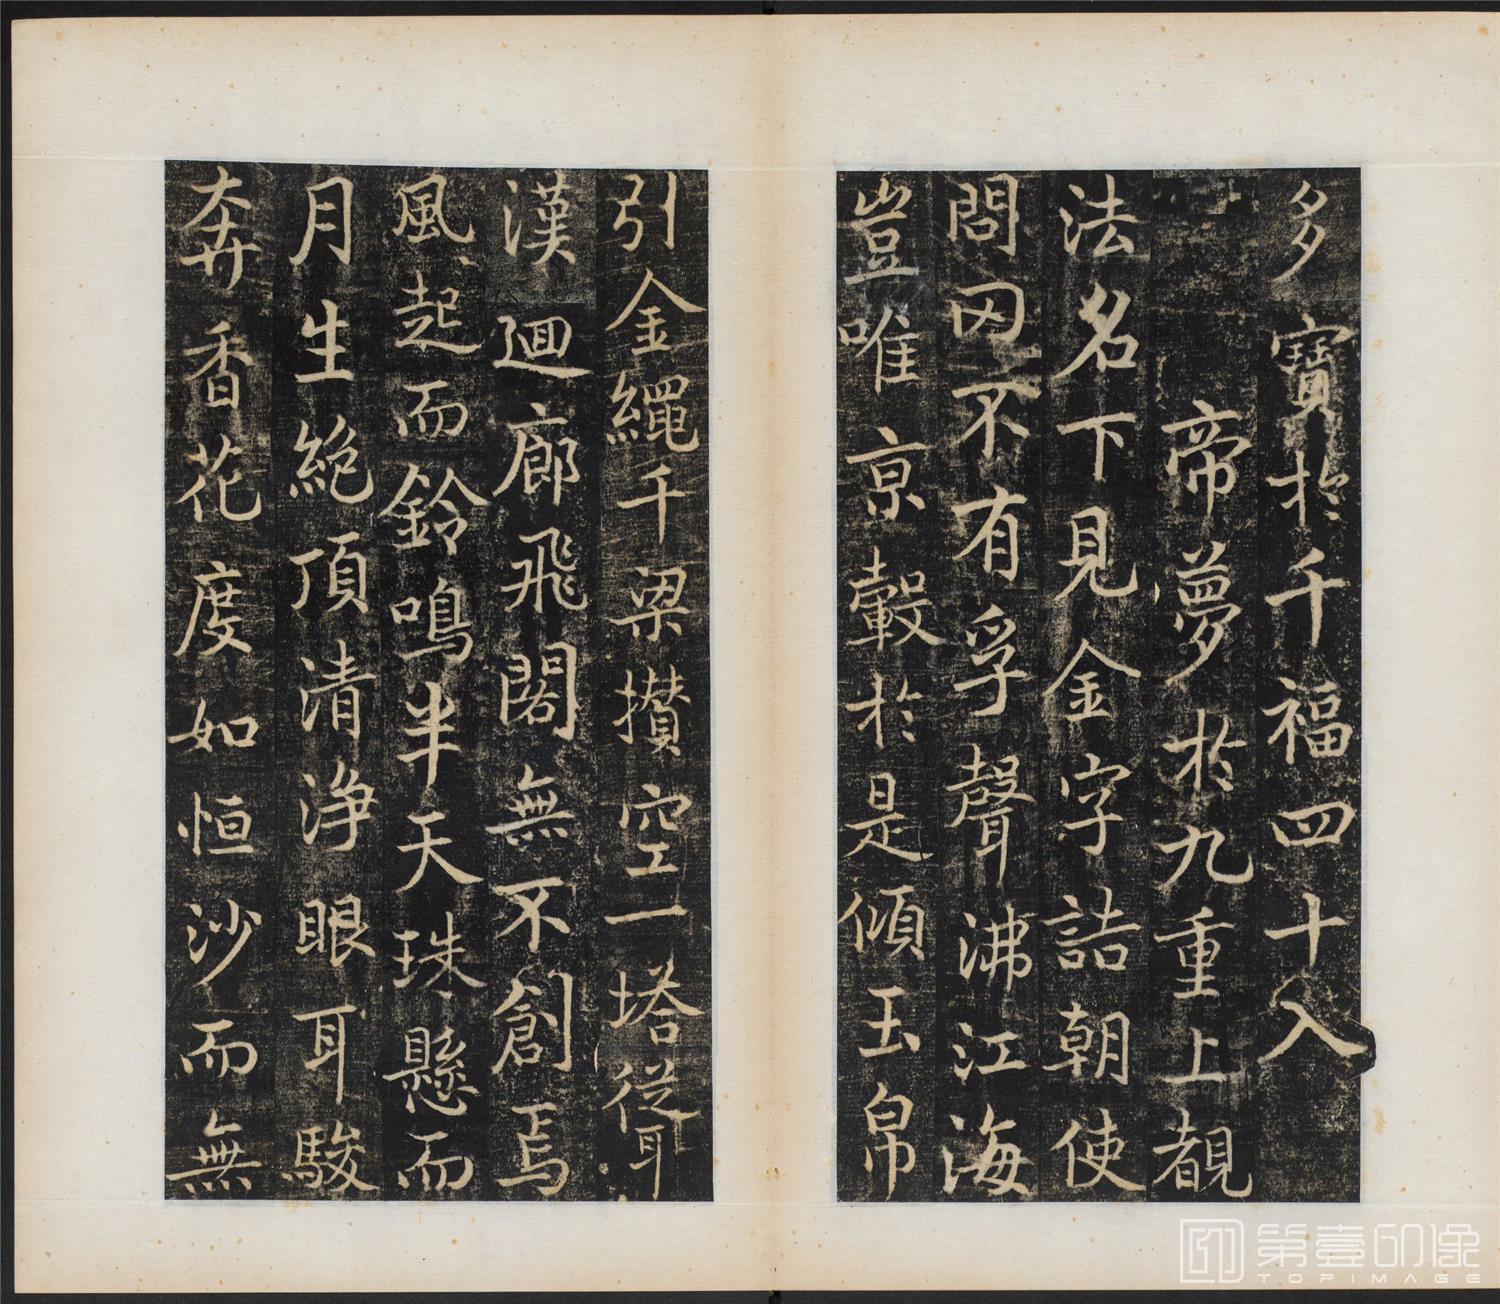 多寶於千福四十入
帝夢於九重上覩
法名下見金字詰朝使
問罔不有孚聲沸江海
豈唯京轂於是傾玉帛
引金繩千梁攢空一塔聳
漢迴廊飛閣無不創焉
風起而鈴鳴半天珠懸而
月生絶頂清淨眼耳駿
奔香花度如恒沙而無
第壹印像
TOPIMAGE